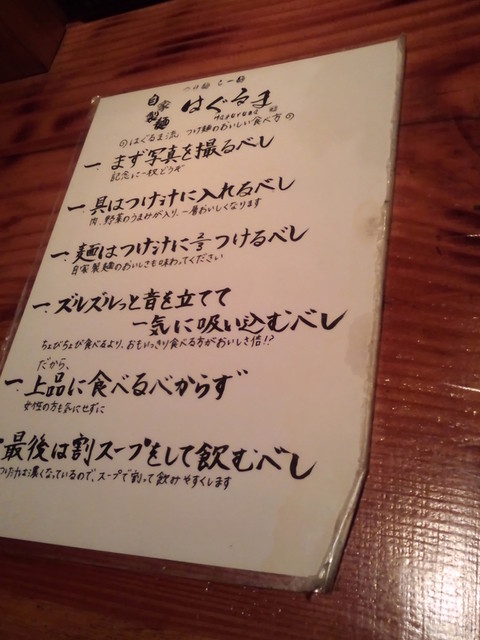 つけ麺 らー麺
自家製麺 はぐるま
HAGURUMA
はぐるま流 つけ麺のおいしい食べ方の
一、まず写真を撮るべし
記念に一枚どうぞ
一、具はつけ汁に入れるべし
肉、野菜のうまみが入り、一層おいしくなります
一、麺はつけ汁に2/3つけるべし
自家製麺のおいしさも味わってください
一、ズルズルっと音を立てて
一気に吸い込むべし
ちょびちょび食べるより、おもいっきり食べる方がおいしさ倍!?
だから、
一、上品に食べるべからず
女性の方も気にせずに
最後は割スープをして飲むべし
つけ汁は濃くなっているので、スープで割って飲みやすくします